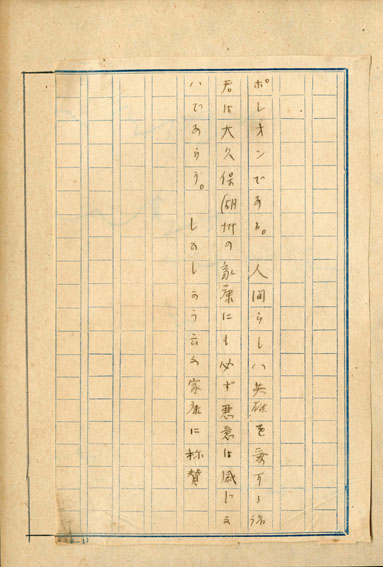 ポレオンである。人間らしい英雄を愛する諸
君は大久保湖州の家康にも必ず悪意は感じな
いであらう。しかしかう云ふ家康に称賛